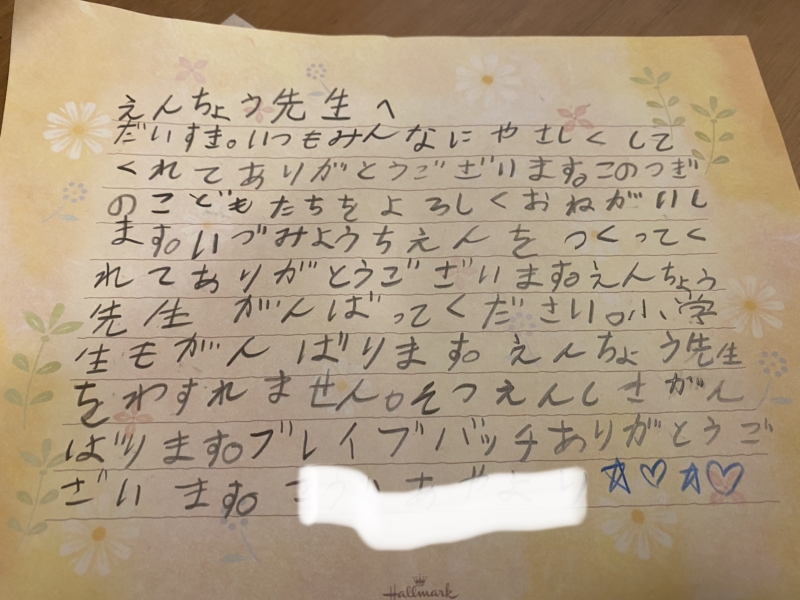 えんちょう先生へ
だいすき。いつもみんなにやさしくして
くれてありがとうございます。このつぎ
のこどもたちをよろしくおねがいし
ます。いづみようちえんをつくってく
れてありがとうございます。えんちょう
先生がんばってください。小学
生もがんばります。えんちょう先生
をわすれません。そつえんしきがん
ばります。ブレイブバッチありがとうご
ざいます。 ☆♡☆♡
Hallmark